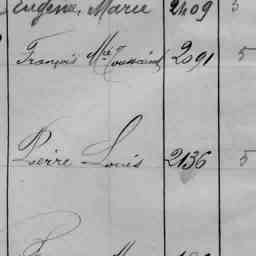 Eugène, Marie 2409 5
François Mie Toussaint 2091 5
Pierre Louis 2136 5